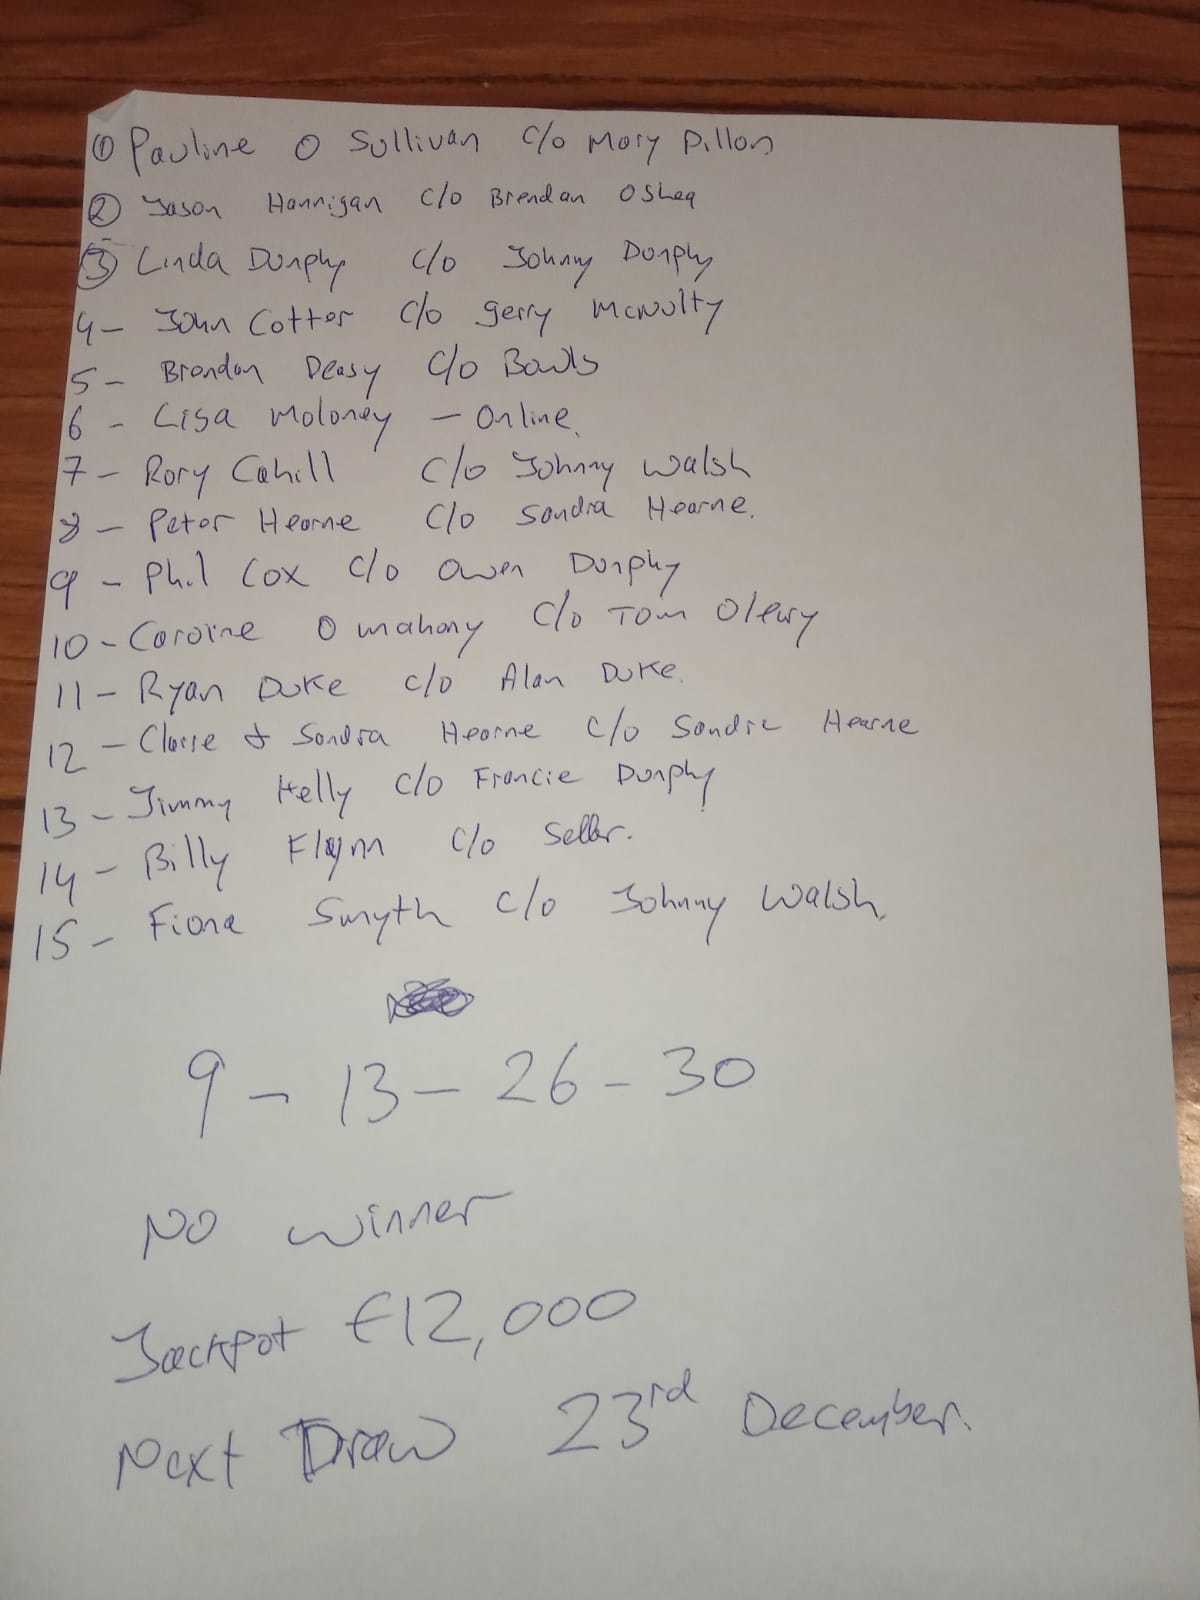 ① Pauline O Sullivan C/o Mary Dillon
② Jason Hannigan C/o Brendan OShea
③ Linda Dunphy C/o Johnny Dunphy
4- John Cotter C/o Gerry McNulty
5- Brendan Deasy C/o Bowls
6- Lisa Moloney - Online.
7- Rory Cahill C/o Johnny Walsh
8- Peter Hearne C/o Sandra Hearne.
9- Phil Cox C/o Owen Dunphy
10- Caroine O mahony C/o Tom Oleary
11- Ryan Duke C/o Alan Duke.
12- Claire & Sandra Hearne C/o Sandra Hearne
13- Jimmy Kelly C/o Francie Dunphy
14- Billy Flynn C/o Seller.
15- Fiona Smyth C/o Johnny Walsh.
9 - 13 - 26 - 30
No winner
Jackpot €12,000
Next Draw 23rd December.